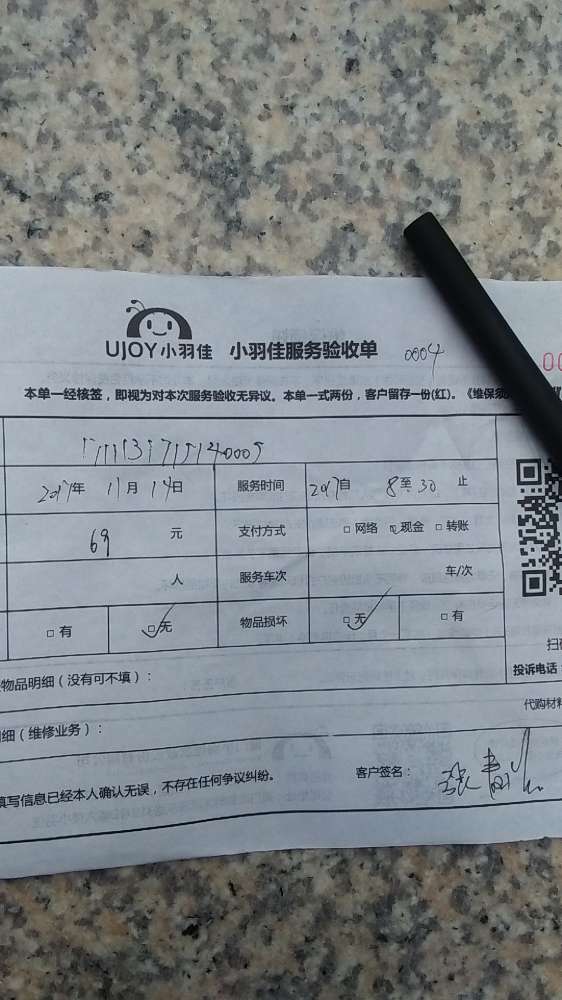 UJOY小羽佳 小羽佳服务验收单 0004 00
本单一经核签，即视为对本次服务验收无异议。本单一式两份，客户留存一份(红)。《维保须
2017年 11月 14日 服务时间 2017自 8至30 止
69 元 支付方式 □ 网络 □ 现金 □ 转账
人 服务车次 车/次
□ 有 □ 无 物品损坏 □ 无 □ 有
扫
物品明细（没有可不填）： 投诉电话：
代购材料
细（维修业务）：
填写信息已经本人确认无误，不存在任何争议纠纷。 客户签名：